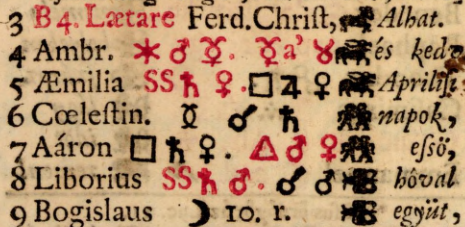 3 B 4. Lætare Ferd. Chriſt, Alhat.
4 Ambr. ⚹ ♂ ☿. ☿ a' ♉ és kedv
5 Æmilia SS ♄ ♀. □ ♃ ♀ Apriliſi
6 Cœleſtin. ☿ ☌ ♄ napok,
7 Aáron □ ♄ ♀. △ ♂ ♀ eſső,
8 Liborius SS ♄ ♂. ☌ ♂ hóval
9 Bogislaus ☽ 10. r. együt,